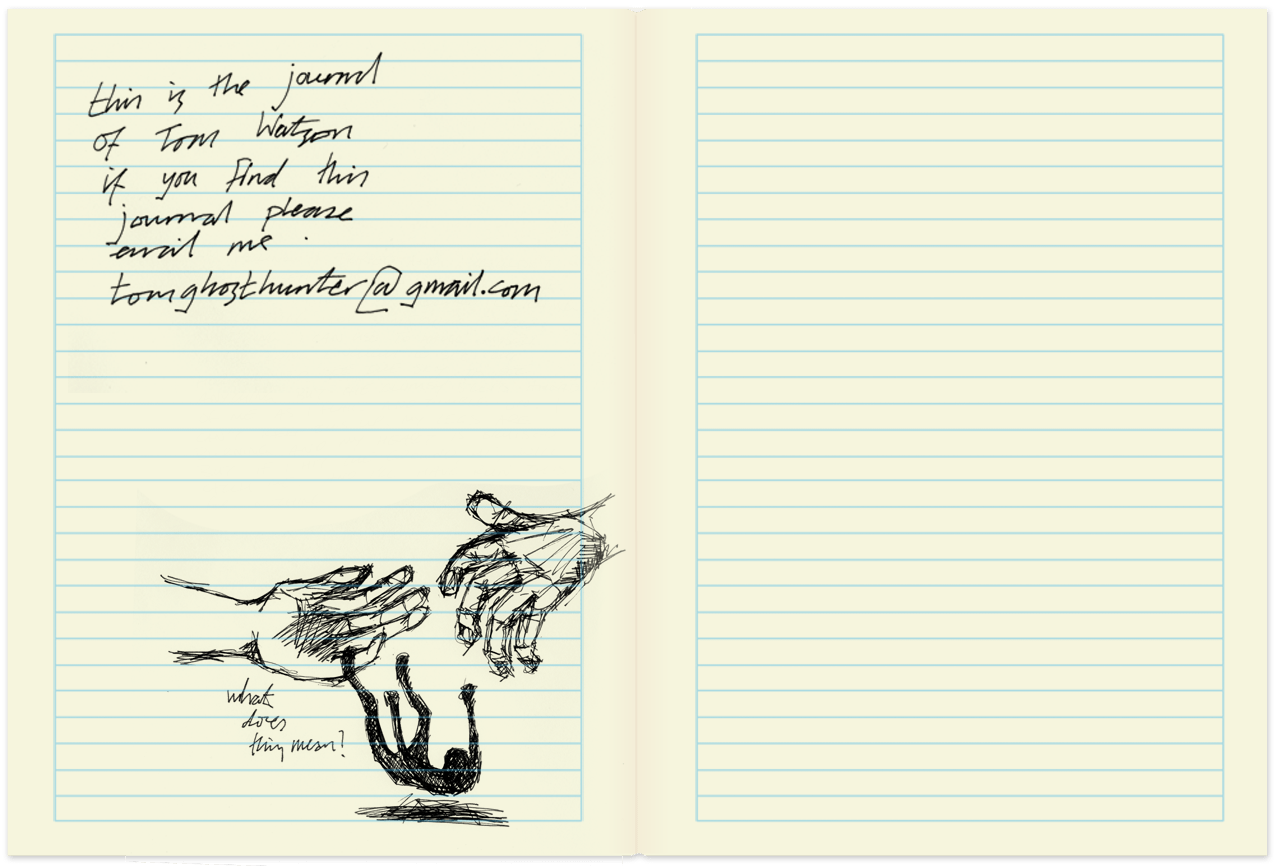 this is the journal
of Tom Watson
if you find this
journal please
email me :
tomghosthunter@gmail.com
what
does
this mean?